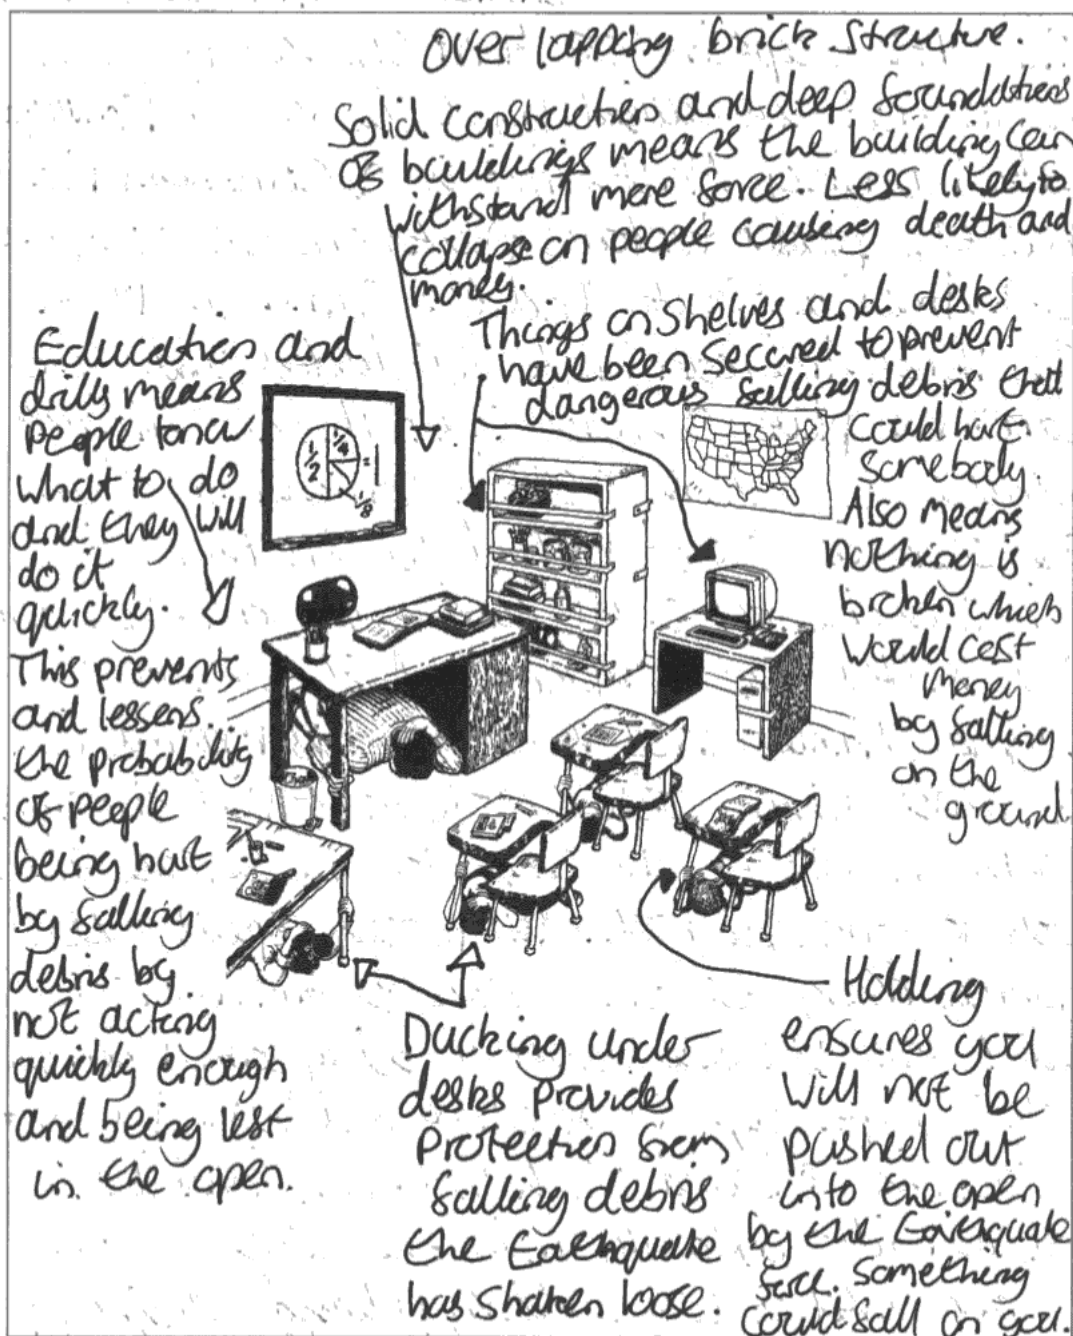 Over lapping brick structure.
Solid construction and deep foundations
of buildings means the building can
withstand more force. Less likely to
collapse on people causing death and
money.
Things on shelves and desks
have been secured to prevent
dangerous falling debris that
could hurt
somebody
Also means
nothing is
broken which
would cost
money
by falling
on the
ground
Education and
drills means
people know
what to do
and they will
do it
quickly.
This prevents
and lessens
the probability
of people
being hurt
by falling
debris by
not acting
quickly enough
and being left
in the open.
1/2
1/4
=1
1/8
Ducking under
desks provides
protection from
falling debris
the Earthquake
has shaken loose.
Holding
ensures you
will not be
pushed out
into the open
by the Earthquake
force. Something
could fall on you.